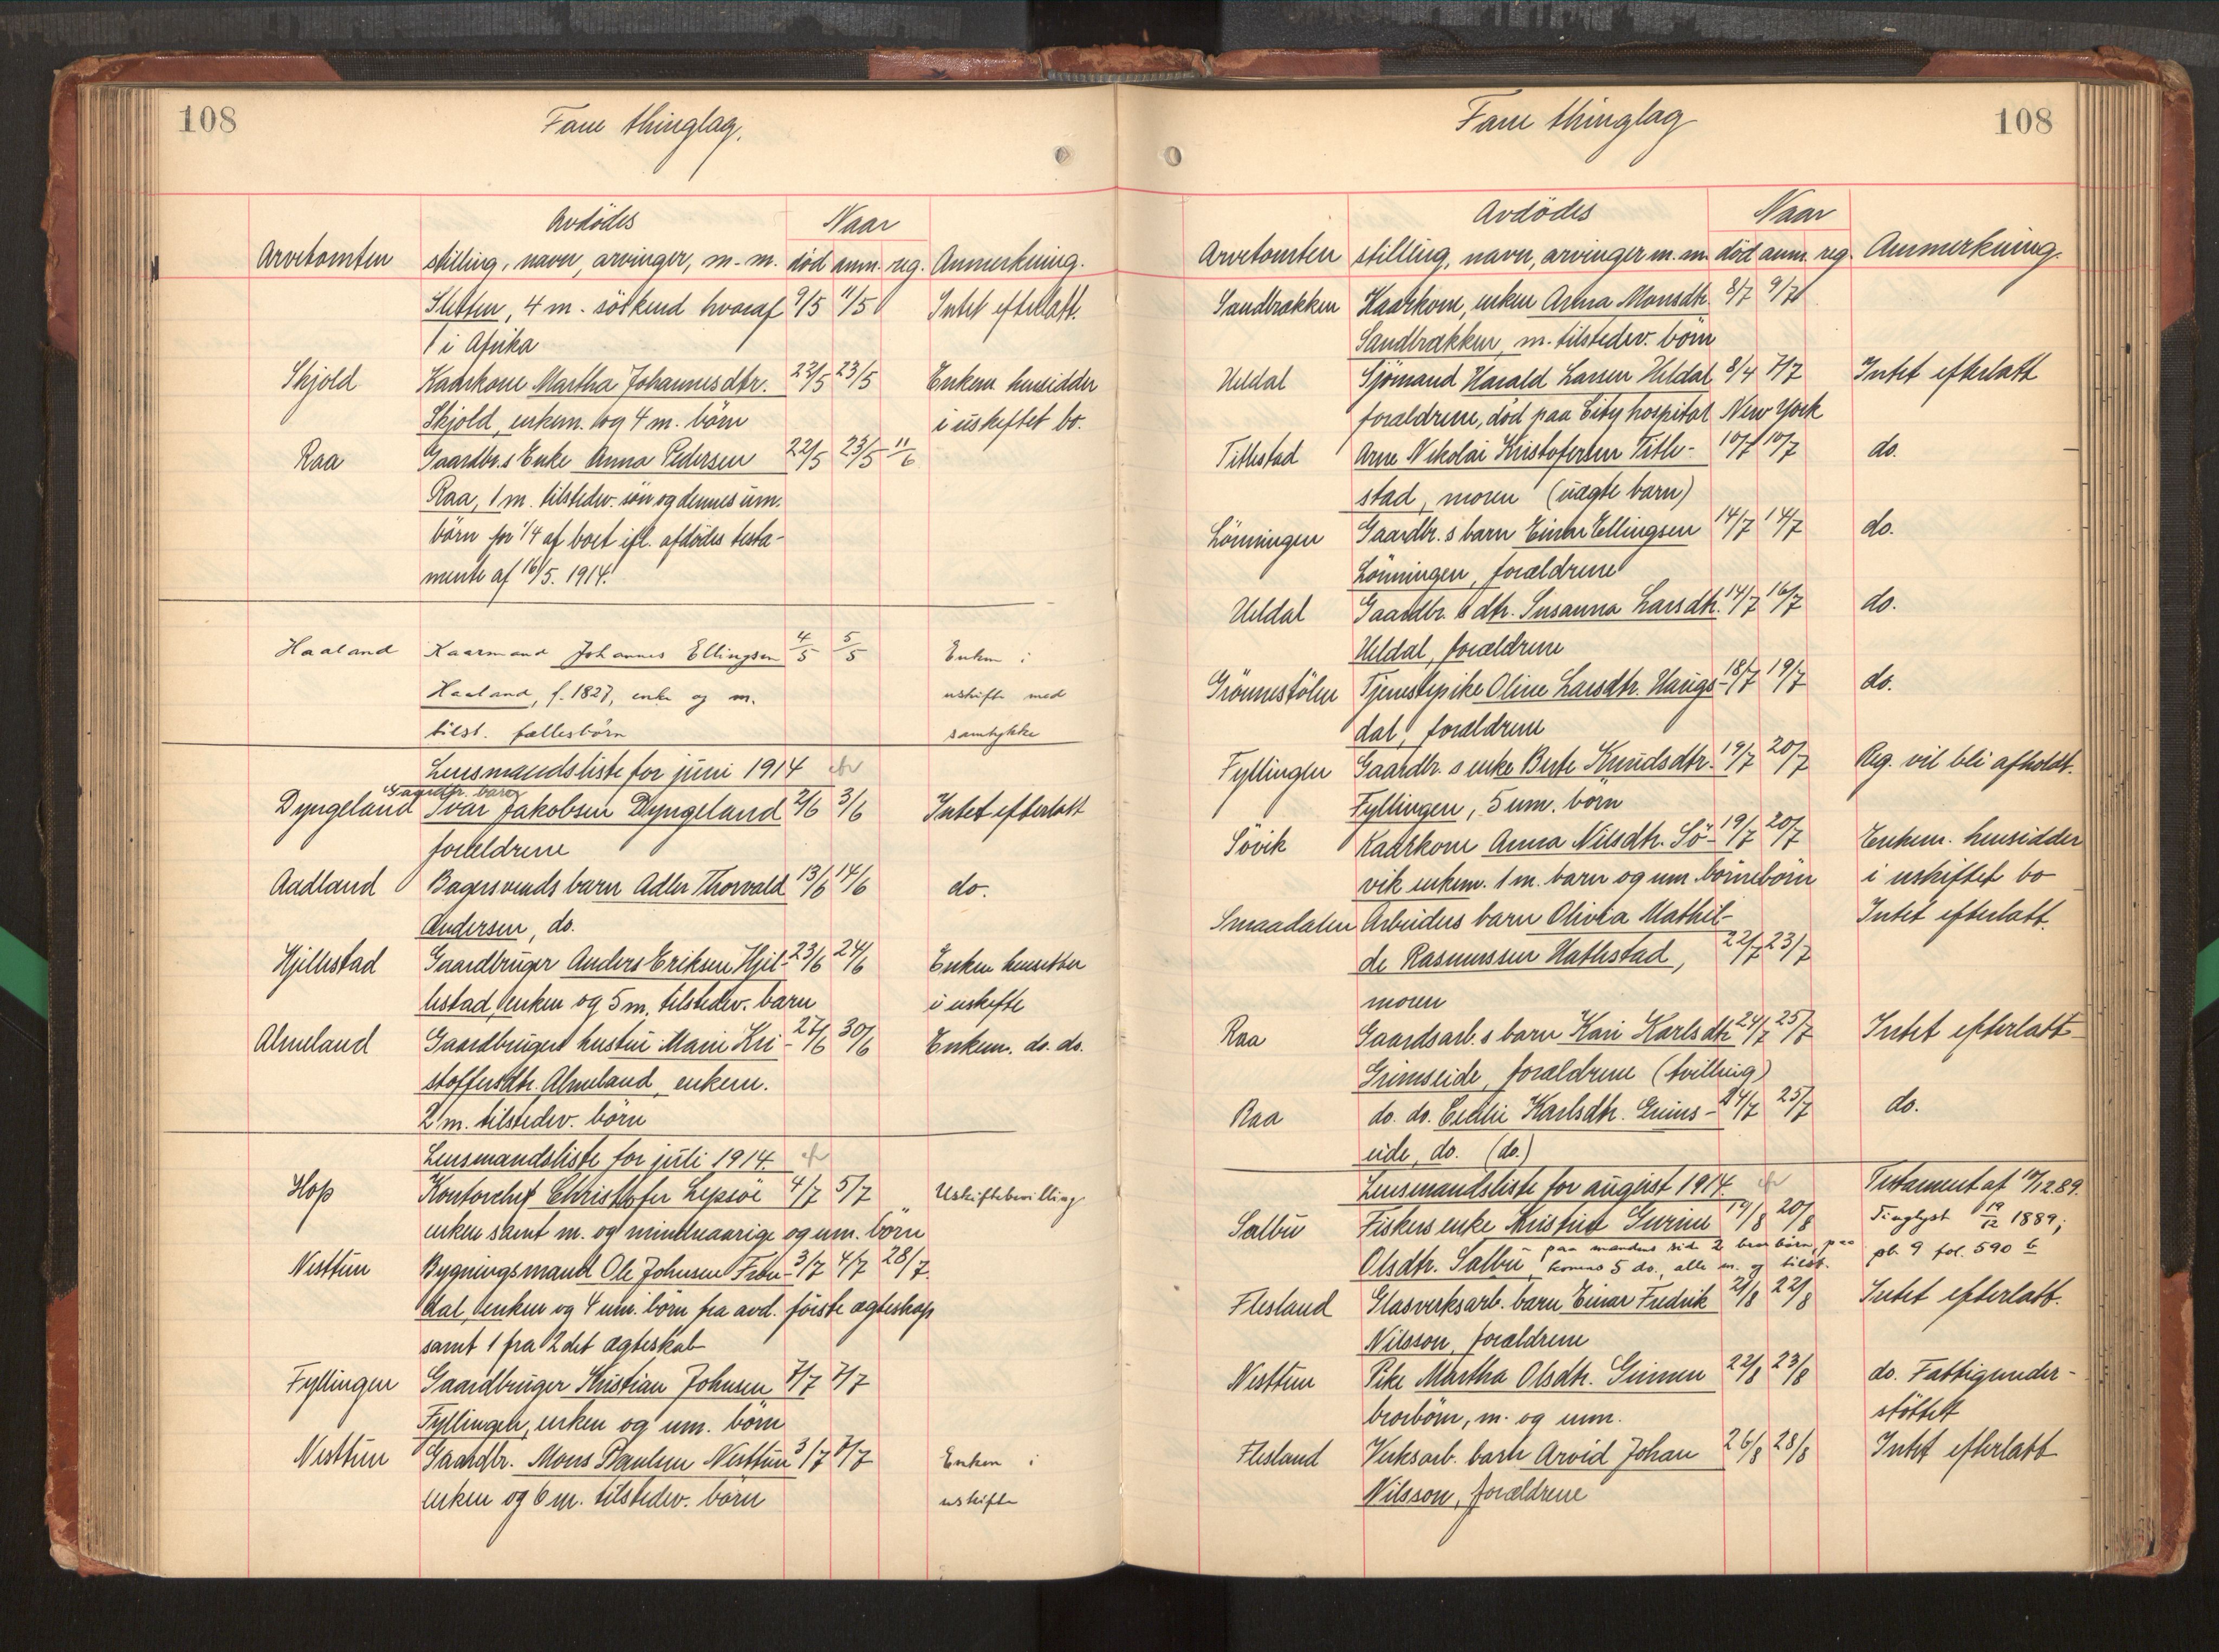 108
Fane thinglag.
Avdödes
Naar
Arvetomten stilling, navn, arvinger, m. m. död anm. reg. Anmerkning.
Sletten, 4 m. söskend hvoraf 9/5 11/5 Intet efterlatt.
1 i Afrika
Skjold Kaarkone Martha Johannesdtr. 22/5 23/5 Enkem. hensidder
Skjold, enkem. og 4 m. börn i uskiftet bo.
Raa Gaardbr.s Enke Anna Pedersen 22/5 23/5 11/6
Raa, 1 m. tilstedev. sön og dennes um.
börn for 1/4 af boet ifl. afdödes testa-
mente af 16/5. 1914.
Haaland Kaarmand Johannes Ellingsen 4/5 5/5 Enken i
Haaland, f. 1827, enke og m. uskifte med
tilst. fællesbörn samtykke
Lensmandsliste for juni 1914
Gaardbr. barn
Dyngeland Ivar Jakobsen Dyngeland 2/6 3/6 Intet efterlatt
forældrene
Aadland Bagersvends barn Adler Thorvald 13/6 14/6 do.
Andersen, do.
Hjellestad Gaardbruger Anders Eriksen Hjel- 23/6 24/6 Enken hensitter
lestad, enken og 5 m. tilstedev. barn i uskifte
Almeland Gaardbrugers hustru Mari Kri- 27/6 30/6 Enkem. do. do.
stoffersdtr. Almeland, enkem.
2 m. tilstedev. börn
Lensmandsliste for juli 1914.
Hop Kontorchef Christofer Lepsöe 4/7 5/7 Uskiftebevilling
enken samt m. og mindreaarige og um. börn
Nesttun Bygningsmand Ole Johnsen Fröu- 3/7 4/7 28/7.
dal, enken og 4 um. börn fra avd. förste ægteskap
samt 1 fra 2det ægteskab
Fyllingen Gaardbruger Kristian Johnsen 7/7 7/7
Fyllingen, enken og um. börn
Nesttun Gaardbr. Mons Paulsen Nesttun 3/7 7/7 Enken i
enken og 6 m. tilstedev. börn uskifte
108
Fane thinglag
Avdödes
Naar
Arvetomten stilling, navn, arvinger m. m. död anm. reg. Anmerkning.
Sandbrekken Kaarkone, enken Anna Monsdtr. 8/7 9/7
Sandbrækken, m. tilstedev. börn
Heldal Sjömand Harald Larsen Heldal 8/4 7/7 Intet efterlatt
forældrene, död paa City hospital New York
Titlestad Arne Nikolai Kristofersen Title- 10/7 10/7 do.
stad, moren (uægte barn)
Lönningen Gaardbr.s barn Einar Ellingsen 14/7 14/7 do.
Lönningen, forældrene
Heldal Gaardbr.s dtr. Susanna Larsdtr. 14/7 16/7 do.
Heldal, forældrene
Grönnestölen Tjenestepike Oline Larsdtr. Haugs- 18/7 19/7 do.
dal, forældrene
Fyllingen Gaardbr.s enke Berte Knudsdtr. 19/7 20/7 Reg. vil bli afholdt.
Fyllingen, 5 um. börn
Sövik Kaarkone Anna Nilsdtr. Sö- 19/7 20/7 Enkem. hensidder
vik enkem. 1 m. barn og um. börnebörn i uskiftet bo
Smaadalen Arbeiders barn Olivia Mathil- Intet efterlatt.
de Rasmussen Hatlestad, 22/7 23/7
moren
Raa Gaardsarb.s barn Kari Karlsdtr 24/7 25/7 Intet efterlatt
Grimseide, forældrene (tvilling)
Raa do. do. Cecilie Karlsdtr. Grims- 24/7 25/7 do.
eide, do. (do.)
Lensmandsliste for august 1914. Testament af 10/12 89.
Salbu Fiskers enke Kristine Gurine 19/8 20/8 Tinglyst 19/12 1889;
Olsdtr. Salbu - paa mandens side 2 brorbörn, paa pb. 9 fol. 590 b
konens 5 do., alle m. og tilst.
Flesland Glasverksarb. barn Einar Fredrik 21/8 22/8 Intet efterlatt.
Nilsson, forældrene
Nesttun Pike Martha Olsdtr. Grimen 22/8 23/8 do. Fattigunder-
brorbörn, m. og um. stöttet
Flesland Verksarb. barn Arvid Johan 26/8 28/8 Intet efterlatt
Nilsson, forældrene